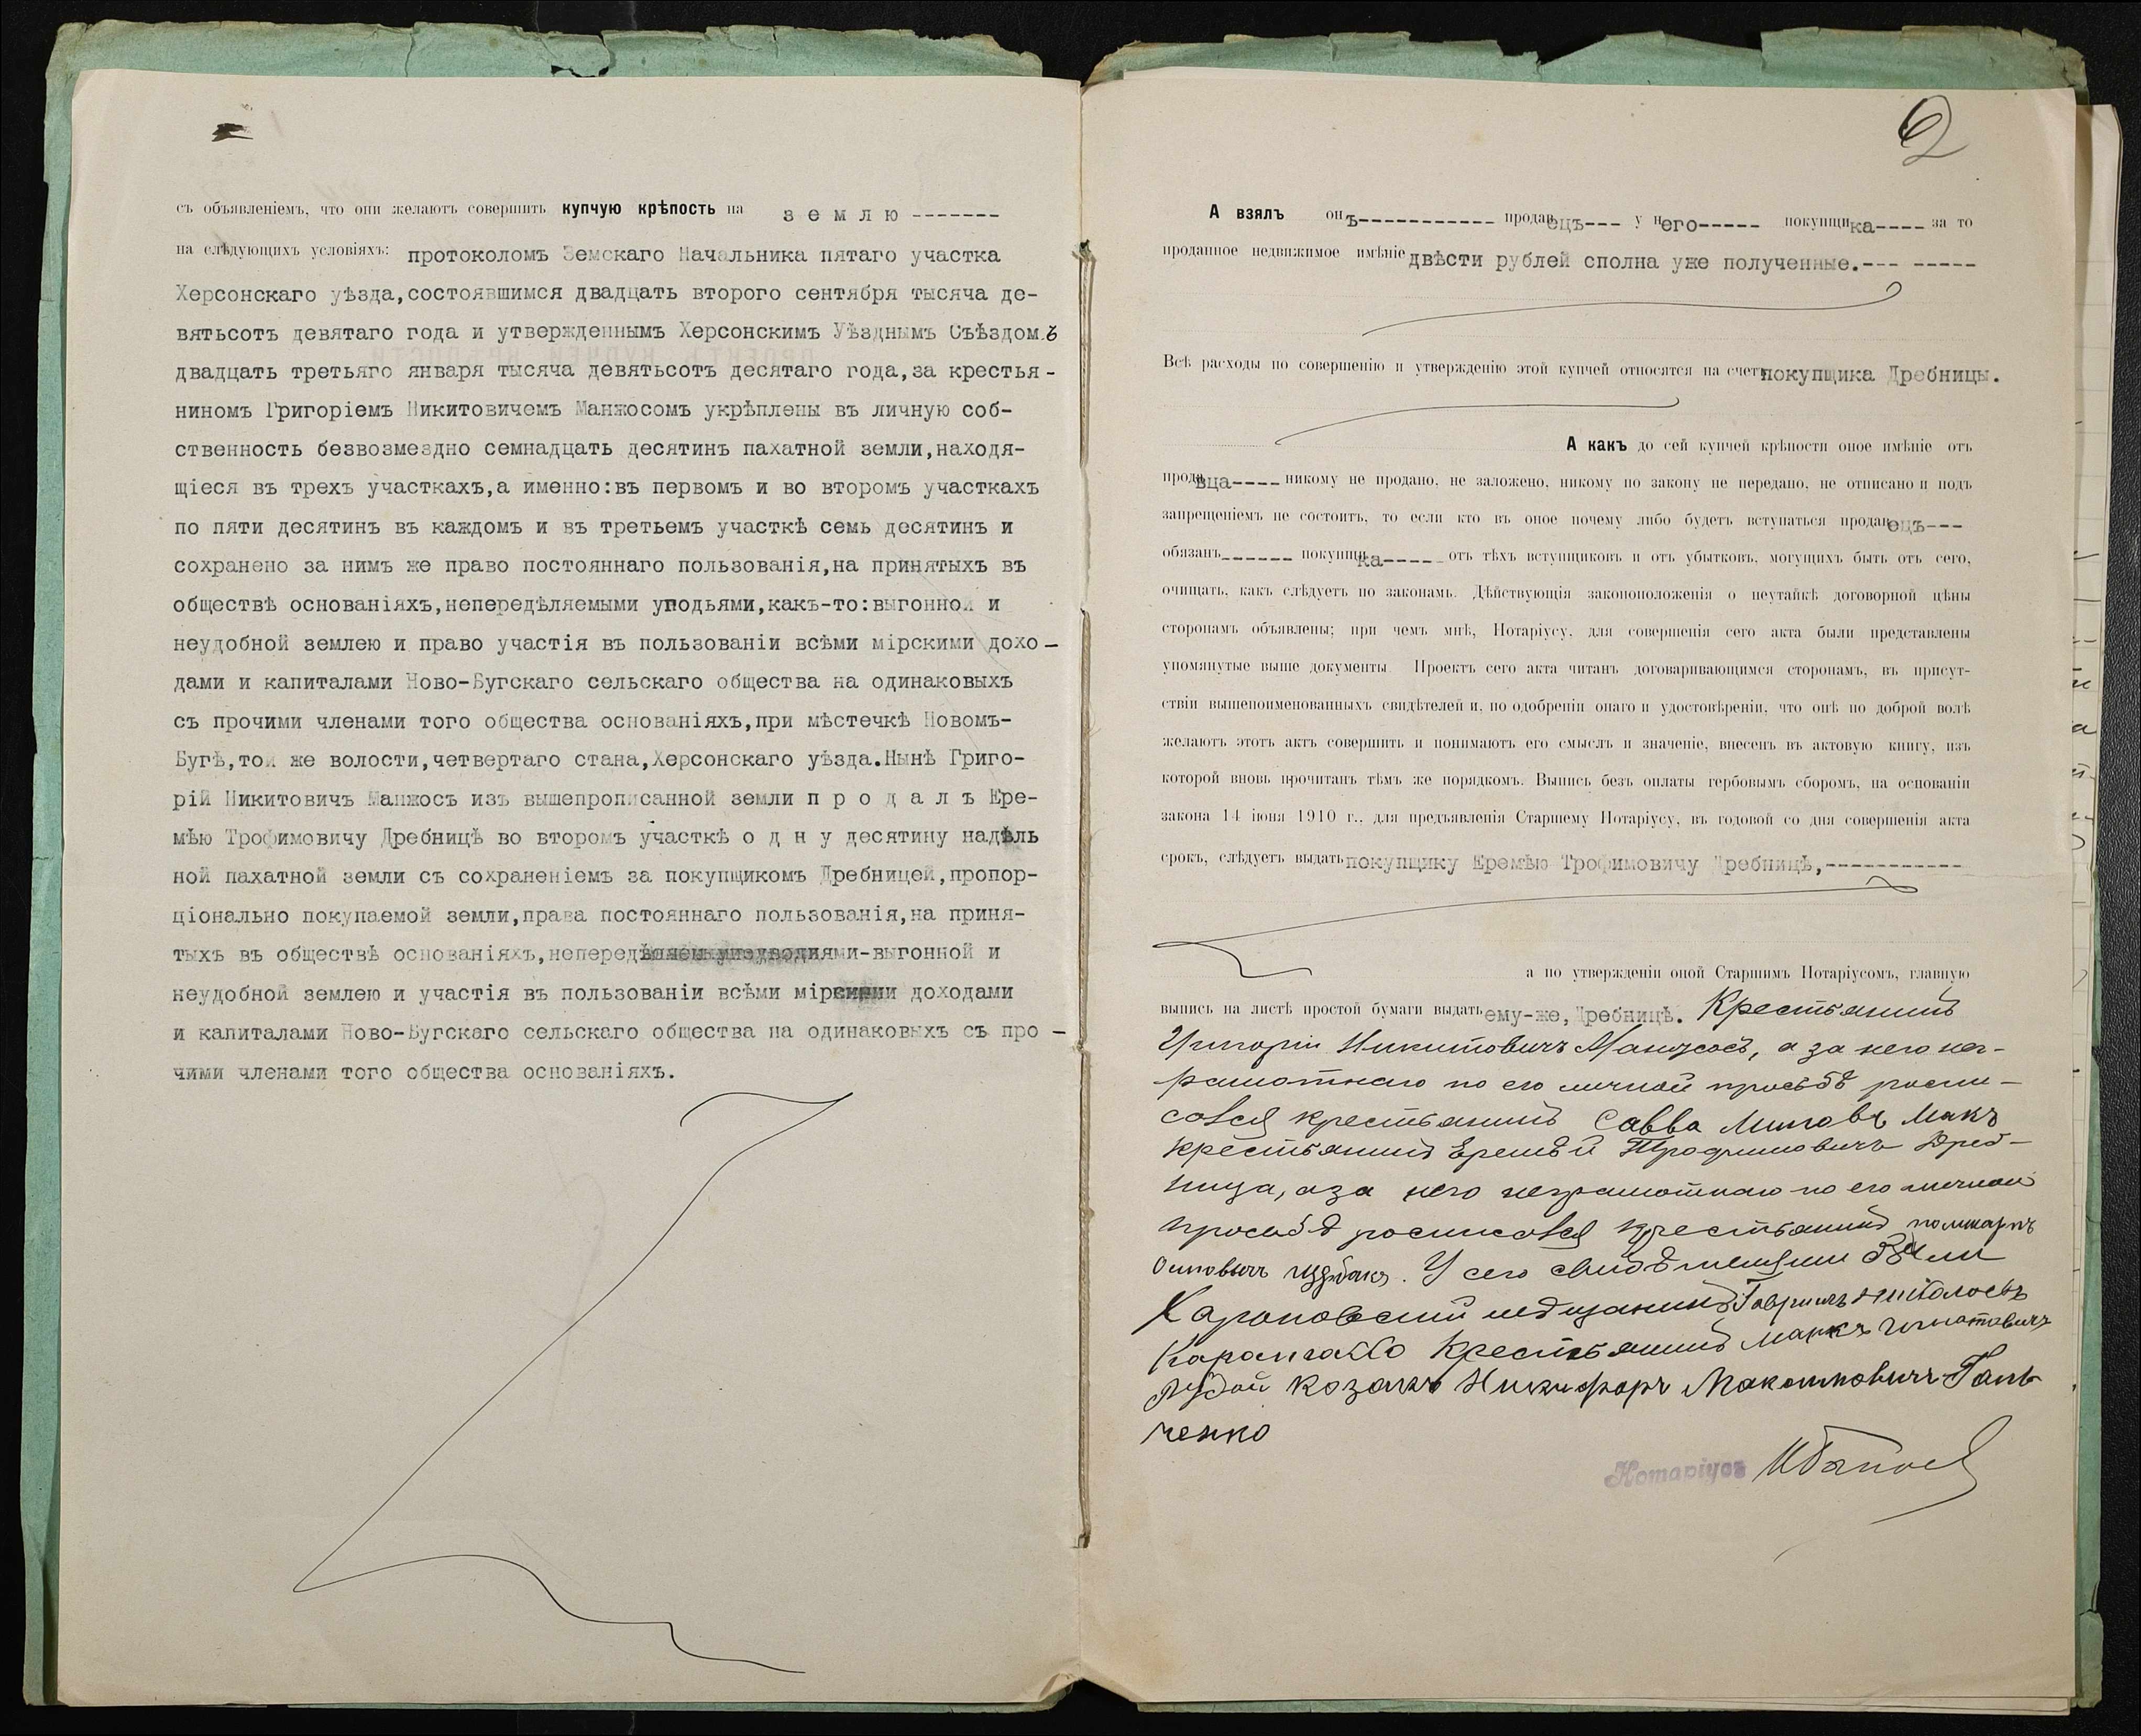 съ объявленіемъ, что они желаютъ совершить купчую крѣпость на з е м л ю -------
на слѣдующихъ условіяхъ: протоколомъ Земскаго Начальника пятаго участка
Херсонскаго уѣзда,состоявшимся двадцать второго сентября тысяча де-
вятьсотъ девятаго года и утвержденнымъ Херсонскимъ Уѣзднымъ Съѣздомъ
двадцать третьяго января тысяча девятьсотъ десятаго года,за крестья-
ниномъ Григоріемъ Никитовичемъ Манжосомъ укрѣплены въ личную соб-
ственность безвозмездно семнадцать десятинъ пахатной земли,находя-
щіеся въ трехъ участкахъ,а именно:въ первомъ и во второмъ участкахъ
по пяти десятинъ въ каждомъ и въ третьемъ участкѣ семь десятинъ и
сохранено за нимъ же право постояннаго пользованія,на принятыхъ въ
обществѣ основаніяхъ,непередѣляемыми угодьями,какъ-то:выгонной и
неудобной землею и право участія въ пользованіи всѣми мірскими дохо-
дами и капиталами Ново-Бугскаго сельскаго общества на одинаковыхъ
съ прочими членами того общества основаніяхъ,при мѣстечкѣ Новомъ-
Бугѣ,той же волости,четвертаго стана,Херсонскаго уѣзда.Нынѣ Григо-
рій Никитовичъ Манжосъ изъ вышепрописанной земли п р о д а л ъ Ере-
мѣю Трофимовичу Дребницѣ во второмъ участкѣ о д н у десятину надѣль
ной пахатной земли съ сохраненіемъ за покупщикомъ Дребницей,пропор-
ціонально покупаемой земли,права постояннаго пользованія,на приня-
тыхъ въ обществѣ основаніяхъ,непередѣляемыми угодиями-выгонной и
неудобной землею и участія въ пользованіи всѣми мірскими доходами
и капиталами Ново-Бугскаго сельскаго общества на одинаковыхъ съ про-
чими членами того общества основаніяхъ.
2
А взялъ онъ----------- продавецъ--- у него----- покупщика---- за то
проданное недвижимое имѣніе двѣсти рублей сполна уже полученные.--- -----
Всѣ расходы по совершенію и утвержденію этой купчей относятся на счетъ покупщика Дребницы.
А какъ до сей купчей крѣпости оное имѣніе отъ
продавца---- никому не продано, не заложено, никому по закону не передано, не отписано и подъ
запрещеніемъ не состоитъ, то если кто въ оное почему либо будетъ вступаться продавецъ---
обязанъ------ покупщика----- отъ тѣхъ вступщиковъ и отъ убытковъ, могущихъ быть отъ сего,
очищать, какъ слѣдуетъ по законамъ. Дѣйствующія законоположенія о неутайкѣ договорной цѣны
сторонамъ объявлены; при чемъ мнѣ, Нотаріусу, для совершенія сего акта были представлены
упомянутые выше документы Проектъ сего акта читанъ договаривающимся сторонамъ, въ присут-
ствіи вышепоименованныхъ свидѣтелей и, по одобреніи онаго и удостовѣреніи, что онѣ по доброй волѣ
желаютъ этотъ актъ совершить и понимаютъ его смыслъ и значеніе, внесенъ въ актовую книгу, изъ
которой вновь прочитанъ тѣмъ же порядкомъ. Выпись безъ оплаты гербовымъ сборомъ, на основаніи
закона 14 іюня 1910 г., для предъявленія Старшему Нотаріусу, въ годовой со дня совершенія акта
срокъ, слѣдуетъ выдать покупщику Еремѣю Трофимовичу Дребницѣ,-----------
а по утвержденіи оной Старшимъ Нотаріусомъ, главную
выпись на листѣ простой бумаги выдать ему-же,Дребницѣ. Крестьянинъ
Григорій Никитовичъ Манжосъ, а за него нег-
рамотнаго по его личной просьбѣ роспи-
сался крестьянинъ Савва Макъ
крестьянинъ Еремѣй Трофимовичъ Дреб-
ница, а за него неграмотнаго по его личной
просьбѣ росписался крестьянинъ поликарпъ
Осиповичъ. У сего свидѣтелями были
мѣщанинъ Гавриилъ
Крестьянинъ Маркъ Игнатовичъ
Рудой козакъ Никифоръ Максимовичъ Гань-
ченко
Нотаріусъ